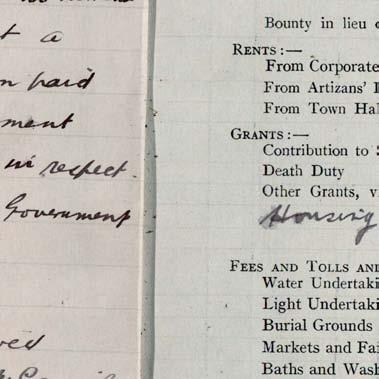 t a
n paid
ment
in respect
Government
ved
Bounty in lieu
RENTS:—
From Corporate
From Artizans'
From Town Hal
GRANTS:—
Contribution to
Death Duty
Other Grants, v
Housing
FEES AND TOLLS AND
Water Undertaki
Light Undertaki
Burial Grounds
Markets and Fai
Baths and Wash